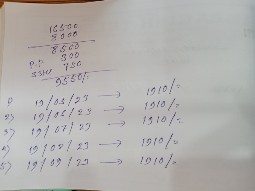 16500
8000
8500
P.F 300
750
9550/-
1) 19/05/23 → 1910/-
2) 19/06/23 → 1910/-
3) 19/07/23 → 1910/-
4) 19/08/23 → 1910/-
5) 19/09/23 → 1910/-